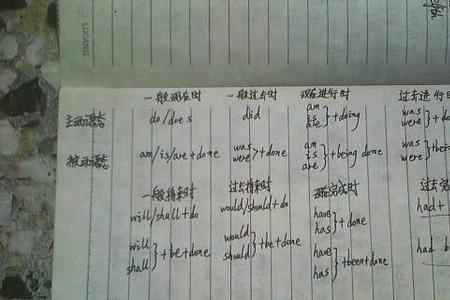 一般现在时 一般过去时 现在进行时 过去进行时
主动语态 do/does did am is are } + doing was were } + do
被动语态 am/is/are + done was were } + done am is are } + being done was were } + bei
一般将来时 过去将来时 现在完成时 过去完
will/shall + do would/should + do have has } + done had +
will shall } + be + done would should } + be + done have has } + been + done had b